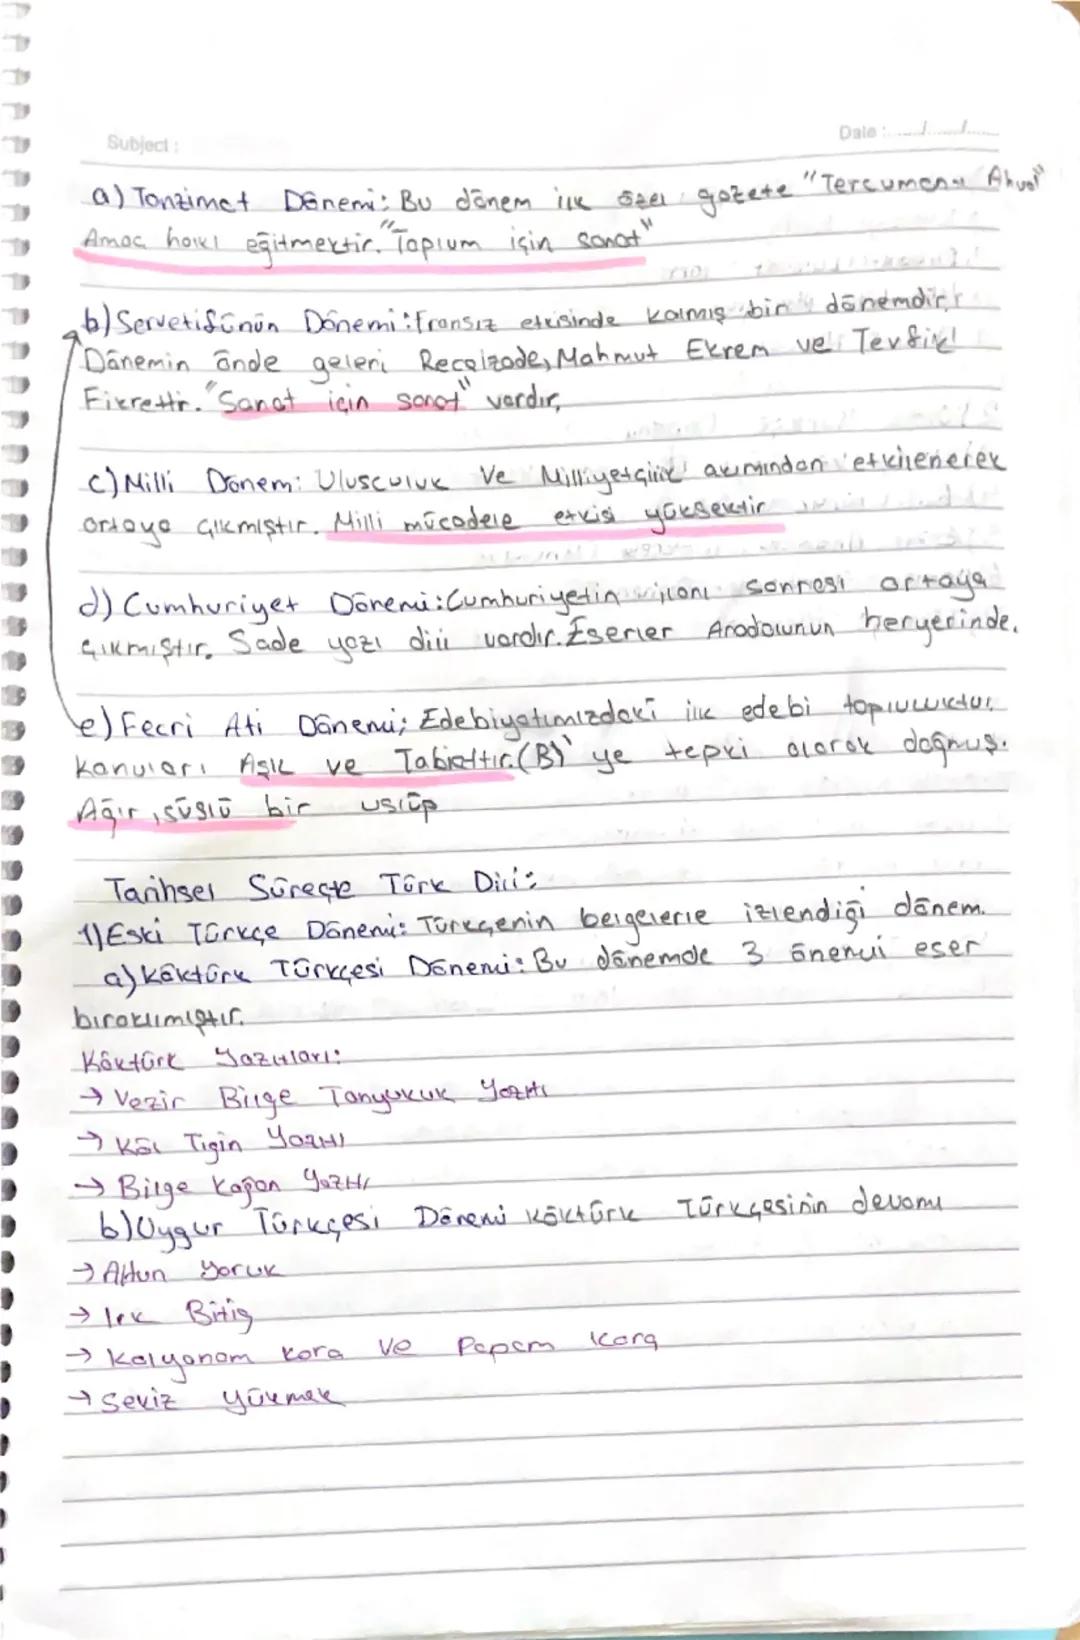 Subject :
Date : ...../...../.....
a) Tanzimat Dönemi: Bu dönem ilk özel gazete "Tercumanı Ahval"
Amaç halkı eğitmektir. "Toplum için sanat"
b) Servetifünün Dönemi: Fransız etkisinde kalmış bir dönemdir.
Dönemin önde geleni Recaizade, Mahmut Ekrem ve Tevfik
Fikrettir. "Sanat için sanat" vardır,
c) Milli Dönem: Ulusculuk ve Milliyetçilik akımından etkilenerek
ortaya çıkmıştır. Milli mücadele etkisi yüksektir
d) Cumhuriyet Dönemi: Cumhuriyetin ilanı sonrası ortaya
çıkmıştır. Sade yazı dili vardır. Eserler Anadolunun heryerinde.
e) Fecri Ati Dönemi; Edebiyatımızdaki ilk edebi topluluktur.
Konuları Aşk ve Tabiattır. (B)'ye tepki olarak doğmuş.
Ağır, süslü bir uslüp
Tarihsel Süreçte Türk Dili:
1) Eski Türkçe Dönemi: Türkçenin belgelerle izlendiği dönem.
a) Köktürk Türkçesi Dönemi: Bu dönemde 3 önemli eser
bırakılmıştır.
Köktürk Yazıtları:
→ Vezir Bilge Tonyukuk Yazıtı
→ Köl Tigin Yazıtı
→ Bilge Kağan Yazıtı
b) Uygur Türkçesi Dönemi Köktürk Türkçesinin devamı
→ Altun Yaruk
→ Irk Bitig
→ Kalyanam kara ve Papam kara
→ Sekiz Yükmek